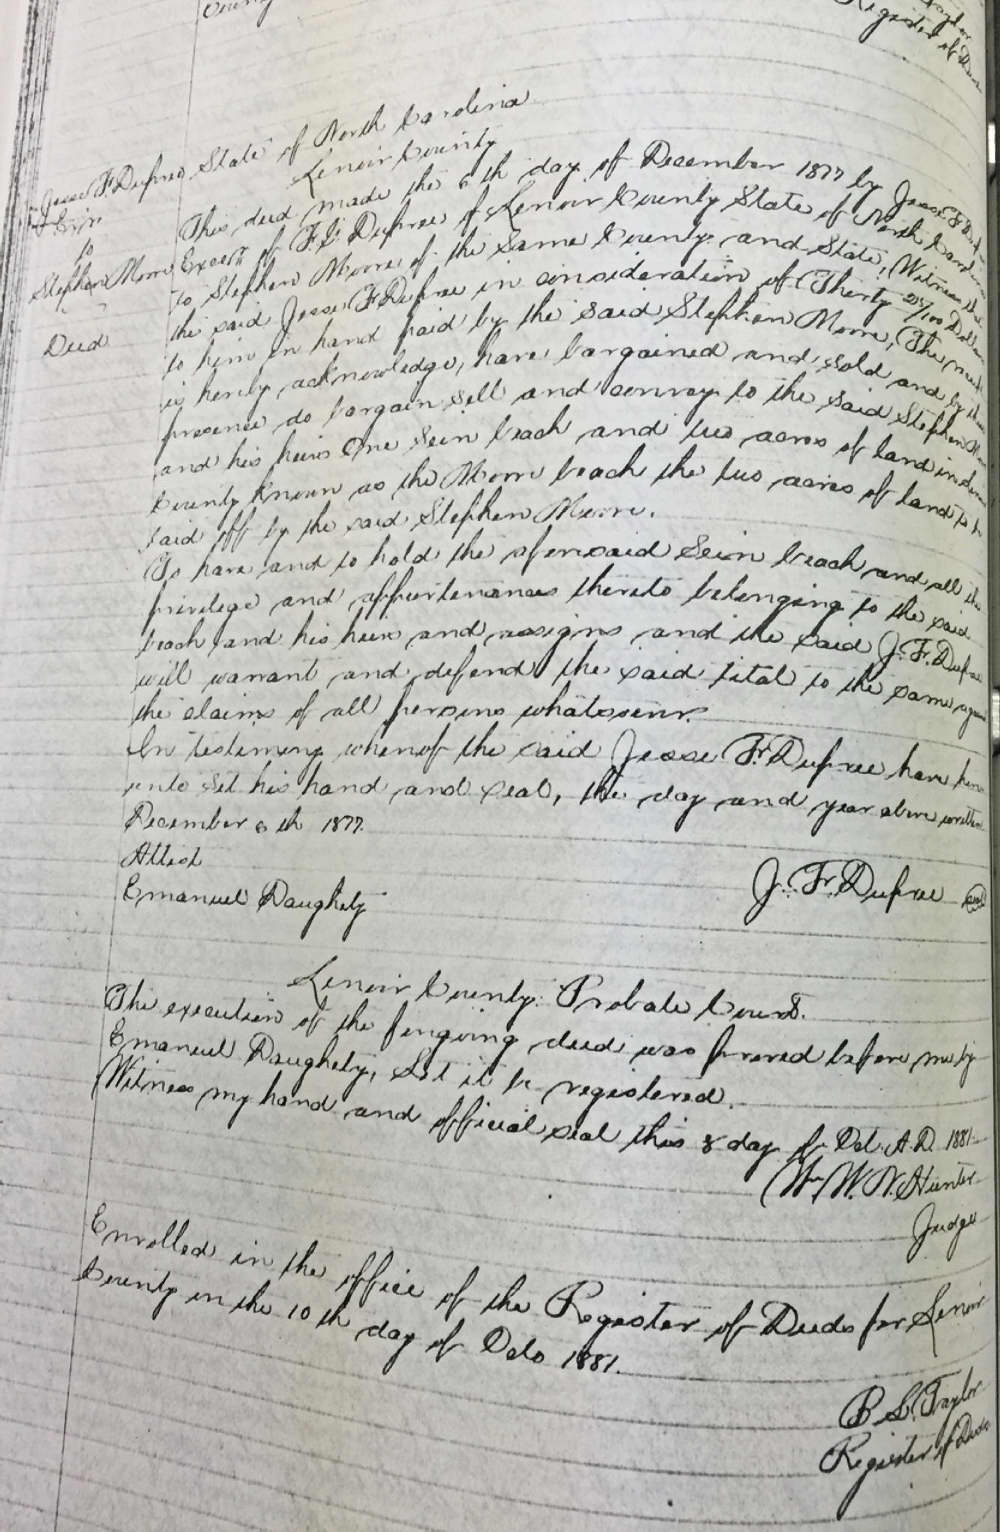 County
Taylor
Register of Deeds
Jesse F. Dupree State of North Carolina
Exr Lenoir County
to
Stephen Moore
Deed
This deed made the 6th day of December 1877 by Jesse F. Dupree
Execr of F. G. Dupree of Lenoir County State of North Carolina
to Stephen Moore of the Same County and State, Witness that
the said Jesse F. Dupree in consideration of Thirty 25/100 Dollars
to him in hand paid by the said Stephen Moore, The receipt
is herely acknowledge, have bargained and sold and by these
presence do bargain sell and convey to the said Stephen Moore
and his heirs One Sein beach and two acres of land in Lenoir
County known as the Moore beach the two acres of land to be
laid off by the said Stephen Moore.
To have and to hold the aforesaid Sein beach and all the
privilege and appurtenances thereto belonging to the said
beach and his heirs and assigns and the said J. F. Dupree
will warrant and defend the said tital to the same against
the claims of all persons whatsoever.
In testimony whereof the said Jesse F. Dupree have here
unto set his hand and seal, the day and year above written
December 6th 1877.
Attest
Emanuel Daughety J. F. Dupree seal
Lenoir County. Probate Court.
The execution of the foregoing deed was proved before me by
Emanuel Daughety, Let it be registered.
Witness my hand and official seal this 8 day of Oct. A.D. 1881
Wm W. N. Hunter
Judge
Enrolled in the office of the Register of Deeds for Lenoir
County in the 10th day of Octo 1881.
B. L. Taylor
Register of Deeds